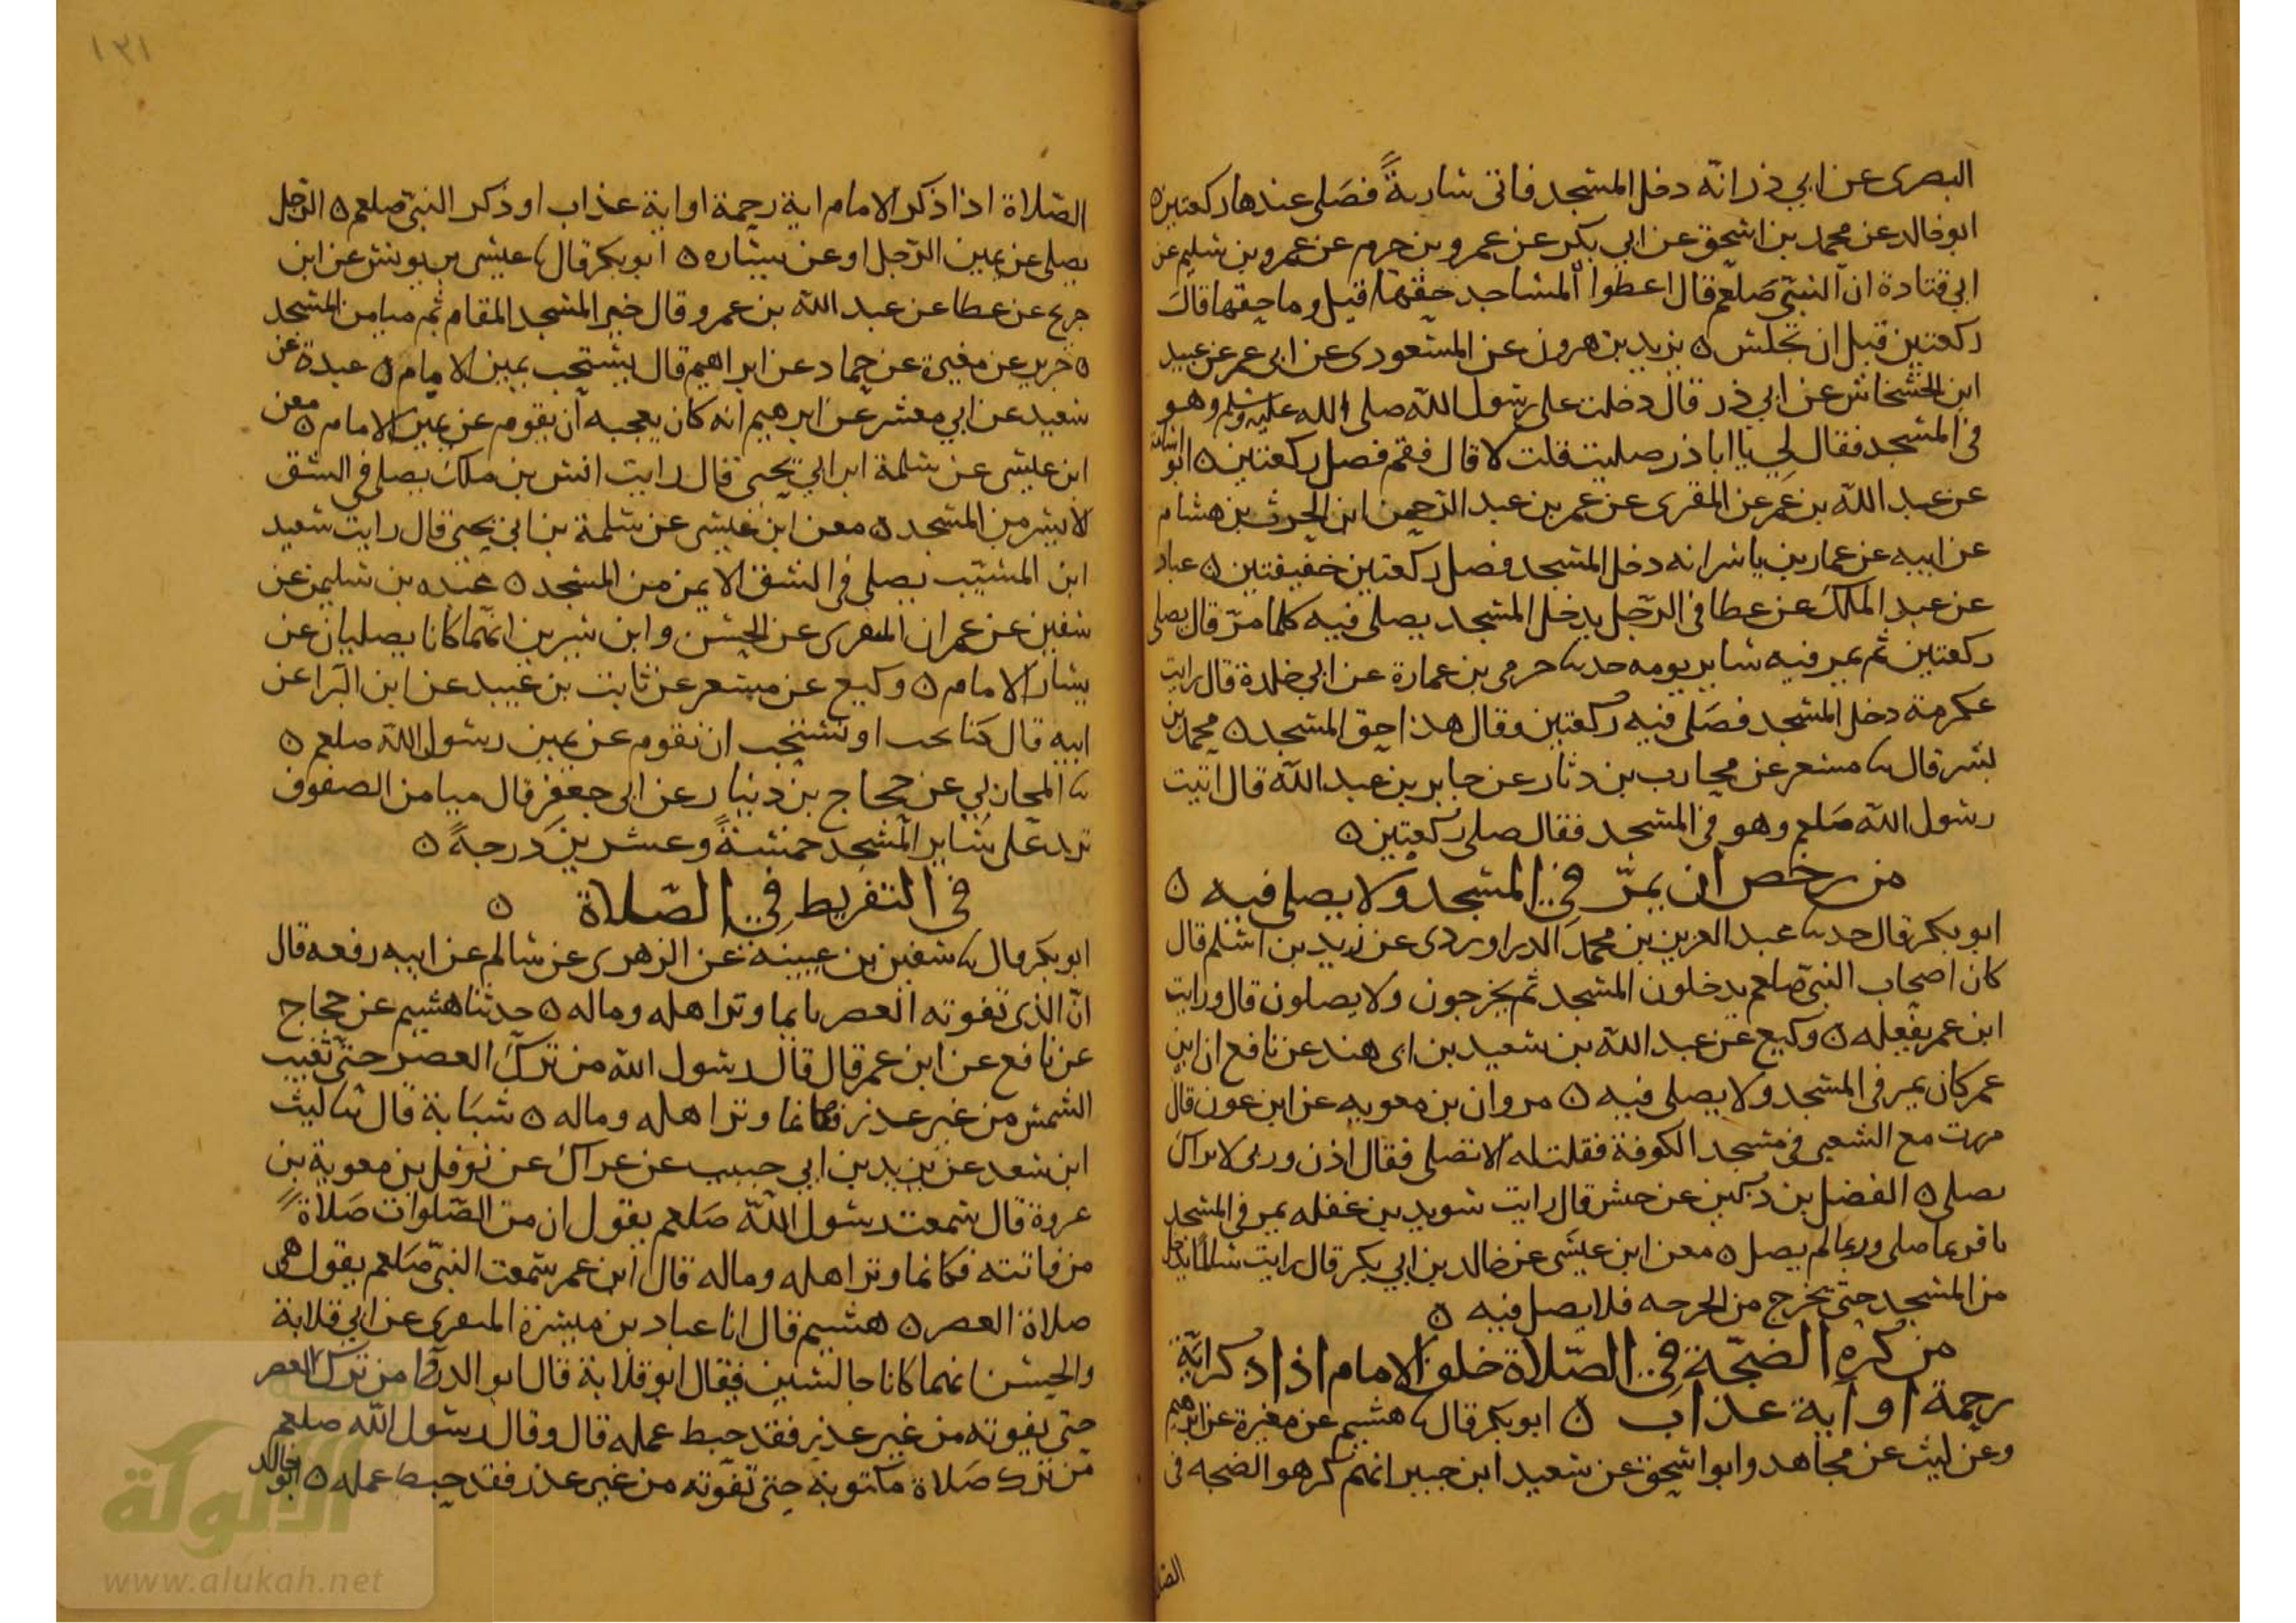 البصرى عن ابي ذر انه دخل المسجد فاتى سارية فصلى عندها ركعتين ه
ابو خالد عن محمد بن اسحق عن ابي بكر عن عمرو بن حزم عن عمرو بن سليم عن
ابي قتادة ان النبي صلعم قال اعطوا المساجد حقها قيل وما حقها قال
ركعتين قبل ان تجلس ه يزيد بن هرون عن المسعودى عن ابى عمر عن عبيد
ابن الخشخاش عن ابي ذر قال دخلت على رسول الله صلى الله عليه وسلم وهو
فى المسجد فقال لي يا ابا ذر صليت قلت لا قال فقم فصل ركعتين ه ابو اسامة
عن عبد الله بن عمر عن المقرى عن عمر بن عبد الرحمن ابن الحرث بن هشام
عن ابيه عن عمار بن ياسر انه دخل المسجد فصل ركعتين خفيفتين ه عباد
عن عبد الملك عن عطا فى الرجل يدخل المسجد يصلى فيه كلما مر قال يصلى
ركعتين ثم يمر فيه ساير يومه حدثنا حرمى بن عمارة عن ابي خلدة قال رايت
عكرمة دخل المسجد فصلى فيه ركعتين وقال هذا حق المسجد ه محمد بن
بشر قال ثنا مسعر عن محارب بن دثار عن جابر بن عبد الله قال اتيت
رسول الله صلعم وهو فى المسجد فقال صلى ركعتين ه
من رخص ان يمر في المسجد ولا يصلى فيه ه
ابو بكر قال حدثنا عبد العزيز بن محمد الدراوردى عن زيد بن اسلم قال
كان اصحاب النبي صلعم يدخلون المسجد ثم يخرجون ولا يصلون قال ورايت
ابن عمر يفعله ه وكيع عن عبد الله بن سعيد بن ابى هند عن نافع ان ابن
عمر كان يمر فى المسجد ولا يصلى فيه ه مروان بن معويه عن ابن عون قال
مررت مع الشعبى فى مسجد الكوفة فقلت له الا تصلى فقال اذن وربى لا نزال
نصلى ه الفضل بن دكين عن حنش قال رايت سويد بن غفله يمر فى المسجد
صلى وربما لم يصل ه معن ابن عيسى عن خالد بن ابي بكر قال رايت سالما يدخل
من المسجد حتى يخرج من الحرحه فلا يصل فيه ه
من كره الضجة في الصلاة خلف الامام اذا ذكر اية
رحمة او آية عذاب ه ابو بكر قال ثنا هشيم عن مغيرة عن ابرهيم
وعن ليث عن مجاهد وابو اسحق عن سعيد ابن جبير انهم كرهو الضجه فى
الصلا
١٣١
الصلاة اذا ذكر الامام اية رحمة او اية عذاب او ذكر النبي صلعم ه الرجل
يصلى عن يمين الرجل او عن يساره ه ابو بكر قال ثنا عيسى بن يونس عن ابن
جريج عن عطا عن عبد الله بن عمرو قال خير المسجد المقام ثم ميامن المسجد
ه جرير عن مغيرة عن حماد عن ابراهيم قال يستحب يمين الامام ه عبدة عن
سعيد عن ابي معشر عن ابرهيم انه كان يعجبه ان يقوم عن يمين الامام ه معن
ابن عيسى عن سلمة ابن ابي يحيى قال رايت انس بن ملك يصلى فى الشق
الايسر من المسجد ه معن ابن عيسى عن سلمة بن ابي يحيى قال رايت سعيد
ابن المسيب يصلى فى الشق الايمن من المسجد ه عبده بن سليمن عن
سفين عن عمران المنقرى عن الحسن وابن سيرين انهما كانا يصليان عن
يسار الامام ه وكيع عن مسعر عن ثابت بن عبيد عن ابن البرا عن
ابيه قال كنا نحب او نستحب ان نقوم عن يمين رسول الله صلعم ه
ثنا المحاربي عن حجاج بن دينار عن ابى جعفر قال ميامن الصفوف
تزيد على ساير المسجد خمسة وعشرين درجة ه
فى التفريط في الصلاة ه
ابو بكر قال ثنا سفين بن عيينة عن الزهرى عن سالم عن ابيه رفعه قال
ان الذى تفوته العصر وتر اهله وماله ه حدثنا هشيم عن حجاج
عن نافع عن ابن عمر قال قال رسول الله من ترك العصر حتى تغيب
الشمس من غير عذر فكانما وتر اهله وماله ه شبابة قال ثنا ليث
ابن سعد عن يزيد بن ابي حبيب عن عراك عن نوفل بن معوية بن
عروة قال سمعت رسول الله صلعم يقول ان من الصلوات صلاة
من فاتته فكانما وتر اهله وماله قال ابن عمر سمعت النبي صلعم يقول هى
صلاة العصر ه هشيم قال انا عباد بن ميسرة المنقرى عن ابي قلابة
والحسن انهما كانا جالسين فقال ابو قلابة قال ابو الدردا من ترك العصر
حتى يفوته من غير عذر فقد حبط عمله قال وقال رسول الله صلعم
من ترك صلاة مكتوبة حتى تفوته من غير عذر فقد حبط عمله ه ابو خالد
الألوكة
www.alukah.net